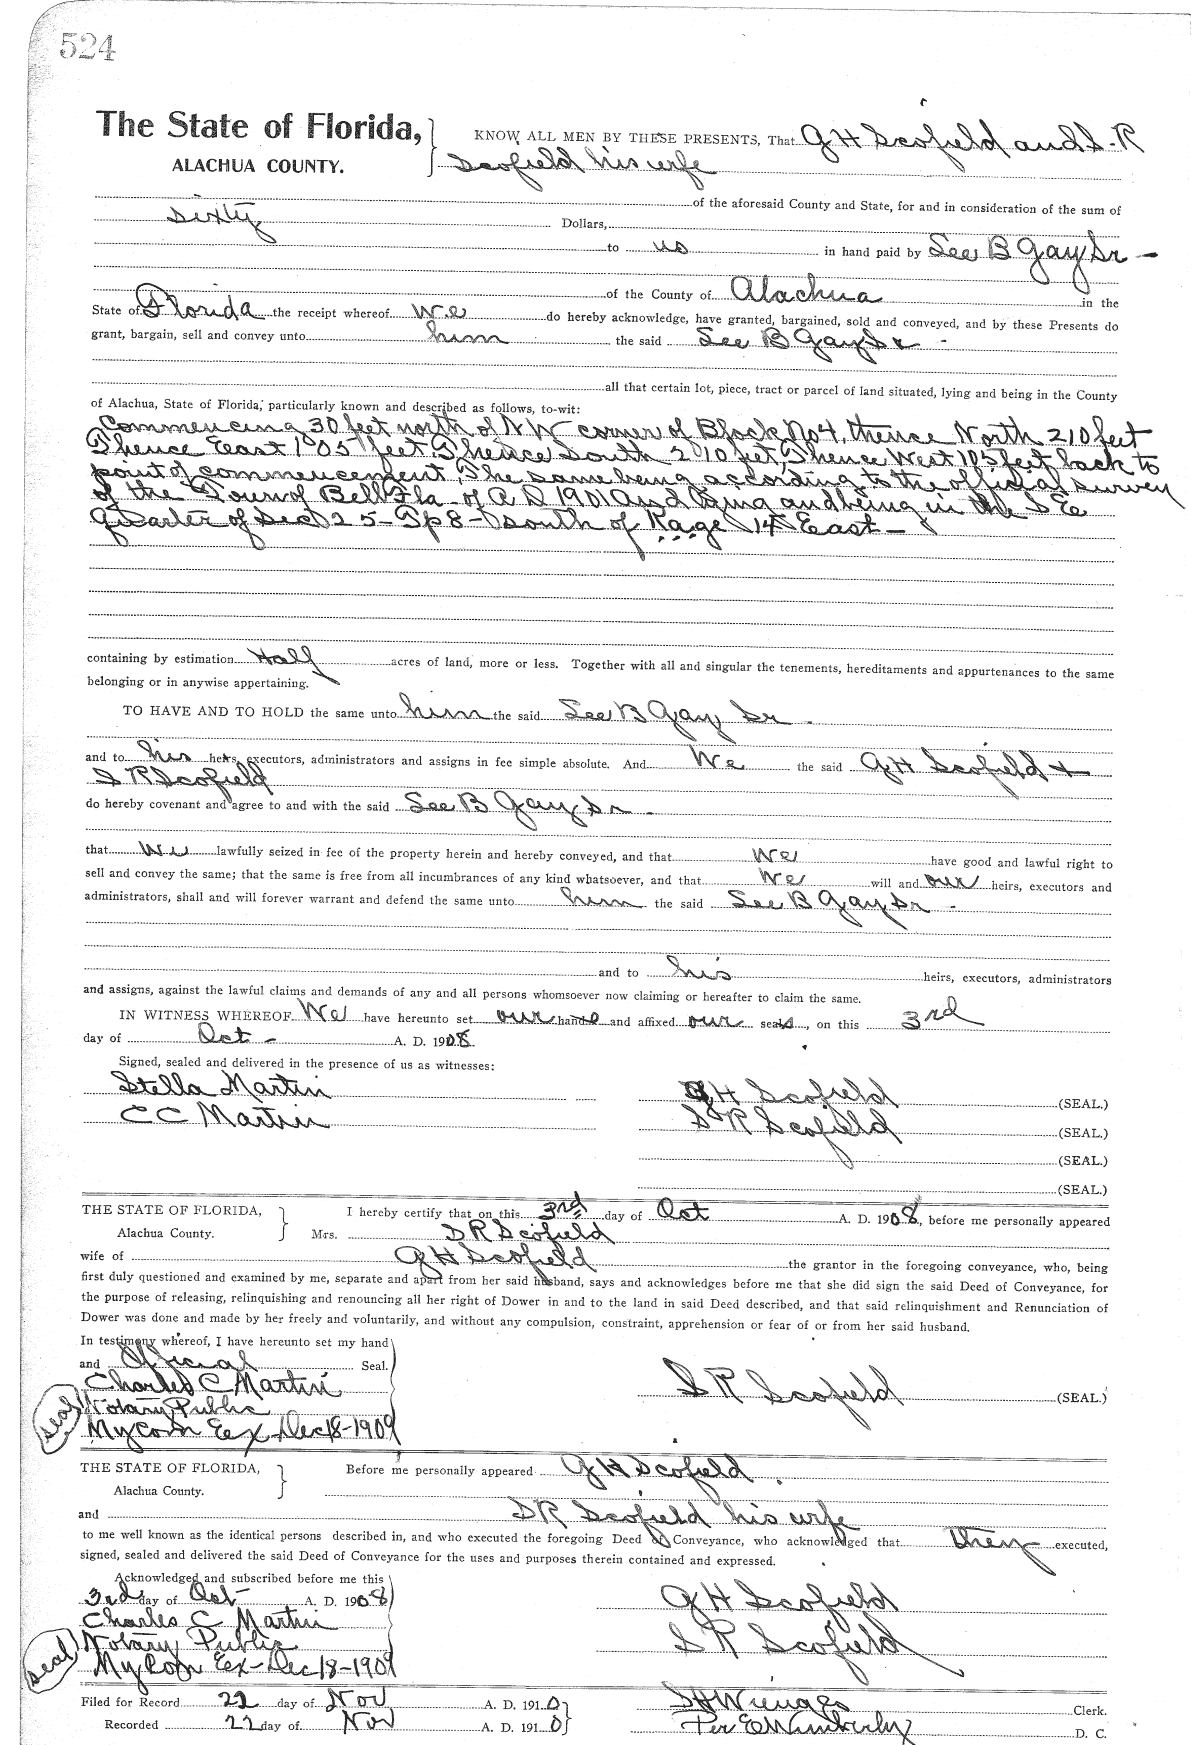 524
The State of Florida, KNOW ALL MEN BY THESE PRESENTS, That G H Scofield and S. R
ALACHUA COUNTY. Scofield his wife
of the aforesaid County and State, for and in consideration of the sum of
Sixty Dollars,
to us in hand paid by See B Gay Sr -
of the County of Alachua in the
State of Florida the receipt whereof We do hereby acknowledge, have granted, bargained, sold and conveyed, and by these Presents do
grant, bargain, sell and convey unto him the said See B Gay Sr -
all that certain lot, piece, tract or parcel of land situated, lying and being in the County
of Alachua, State of Florida, particularly known and described as follows, to-wit:
Commencing 30 feet north of NW corner of Block No 4, thence North 210 feet
Thence East 105 feet Thence South 210 feet, Thence West 105 feet back to
point of commencement, The same being according to the official survey
of the Town of Bell Fla - of A D 1901 And lying and being in the S E
Quarter of Sec 25 - Tp 8 - South of Rage 14 East -
containing by estimation Half acres of land, more or less. Together with all and singular the tenements, hereditaments and appurtenances to the same
belonging or in anywise appertaining.
TO HAVE AND TO HOLD the same unto him the said See B Gay Sr -
and to his heirs, executors, administrators and assigns in fee simple absolute. And We the said G H Scofield +
S R Scofield
do hereby covenant and agree to and with the said See B Gay Sr -
that We lawfully seized in fee of the property herein and hereby conveyed, and that We have good and lawful right to
sell and convey the same; that the same is free from all incumbrances of any kind whatsoever, and that We will and our heirs, executors and
administrators, shall and will forever warrant and defend the same unto him the said See B Gay Sr -
and to his heirs, executors, administrators
and assigns, against the lawful claims and demands of any and all persons whomsoever now claiming or hereafter to claim the same.
IN WITNESS WHEREOF We have hereunto set our hands and affixed our seals, on this 3rd
day of Oct - A. D. 1908.
Signed, sealed and delivered in the presence of us as witnesses:
Stella Martin G H Scofield (SEAL.)
C C Martin S R Scofield (SEAL.)
(SEAL.)
(SEAL.)
THE STATE OF FLORIDA, I hereby certify that on this 3rd day of Oct A. D. 1908, before me personally appeared
Alachua County. Mrs. S R Scofield
wife of G H Scofield the grantor in the foregoing conveyance, who, being
first duly questioned and examined by me, separate and apart from her said husband, says and acknowledges before me that she did sign the said Deed of Conveyance, for
the purpose of releasing, relinquishing and renouncing all her right of Dower in and to the land in said Deed described, and that said relinquishment and Renunciation of
Dower was done and made by her freely and voluntarily, and without any compulsion, constraint, apprehension or fear of or from her said husband.
In testimony whereof, I have hereunto set my hand
and Official Seal.
Charles C Martin S R Scofield (SEAL.)
Seal Notary Public
My Com Ex Dec 18-1909
THE STATE OF FLORIDA, Before me personally appeared G H Scofield
Alachua County.
and S R Scofield his wife
to me well known as the identical persons described in, and who executed the foregoing Deed of Conveyance, who acknowledged that they executed,
signed, sealed and delivered the said Deed of Conveyance for the uses and purposes therein contained and expressed.
Acknowledged and subscribed before me this
3rd day of Oct A. D. 1908 G H Scofield
Charles C Martin
Notary Public S R Scofield
Seal My Com Ex-Dec 18-1909
Filed for Record 22 day of Nov A. D. 1910 S H Wienges Clerk.
Recorded 22 day of Nov A. D. 1910 Per E Wimberly D. C.